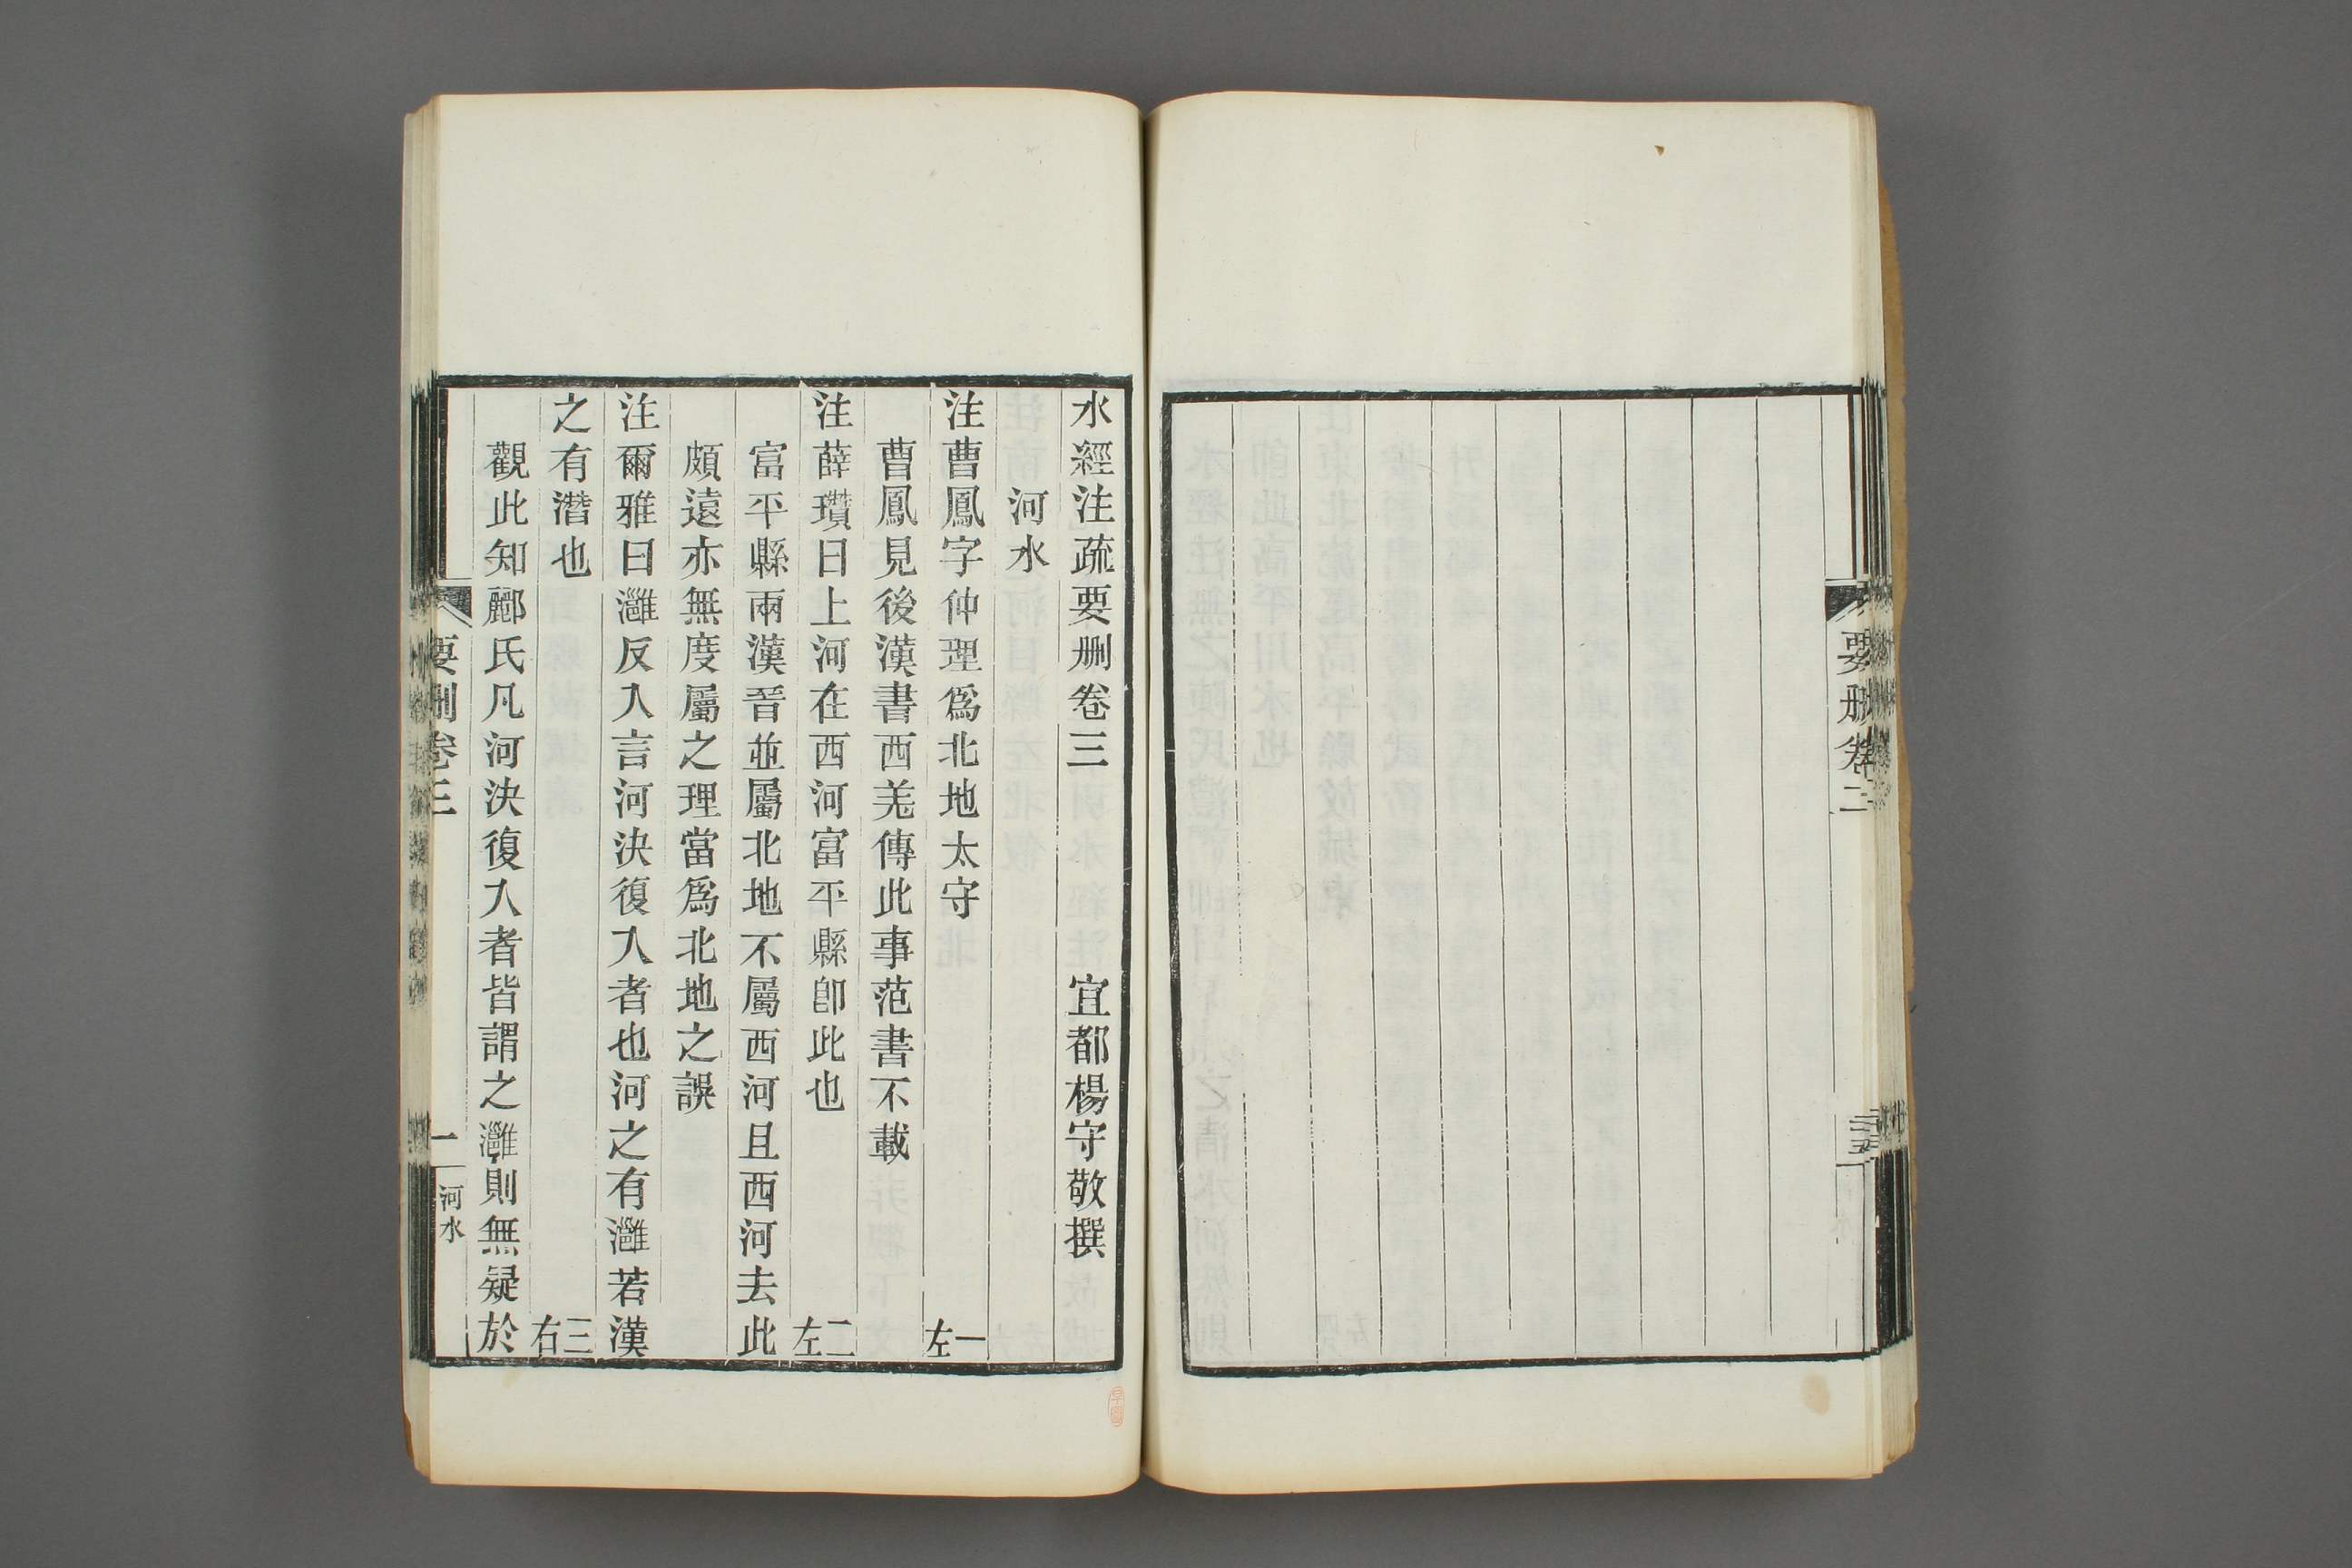 要刪卷二
二十五
水經注疏要刪卷三 宜都楊守敬撰
河水
注曹鳳字仲理爲北地太守 一左
曹鳳見後漢書西羌傳此事范書不載
注薛瓚曰上河在西河富平縣卽此也 二左
富平縣兩漢晉並屬北地不屬西河且西河去此
頗遠亦無度屬之理當爲北地之誤
注爾雅曰灉反入言河決復入者也河之有灉若漢
之有潛也 三右
觀此知酈氏凡河決復入者皆謂之灉則無疑於
要刪卷三
一
河水